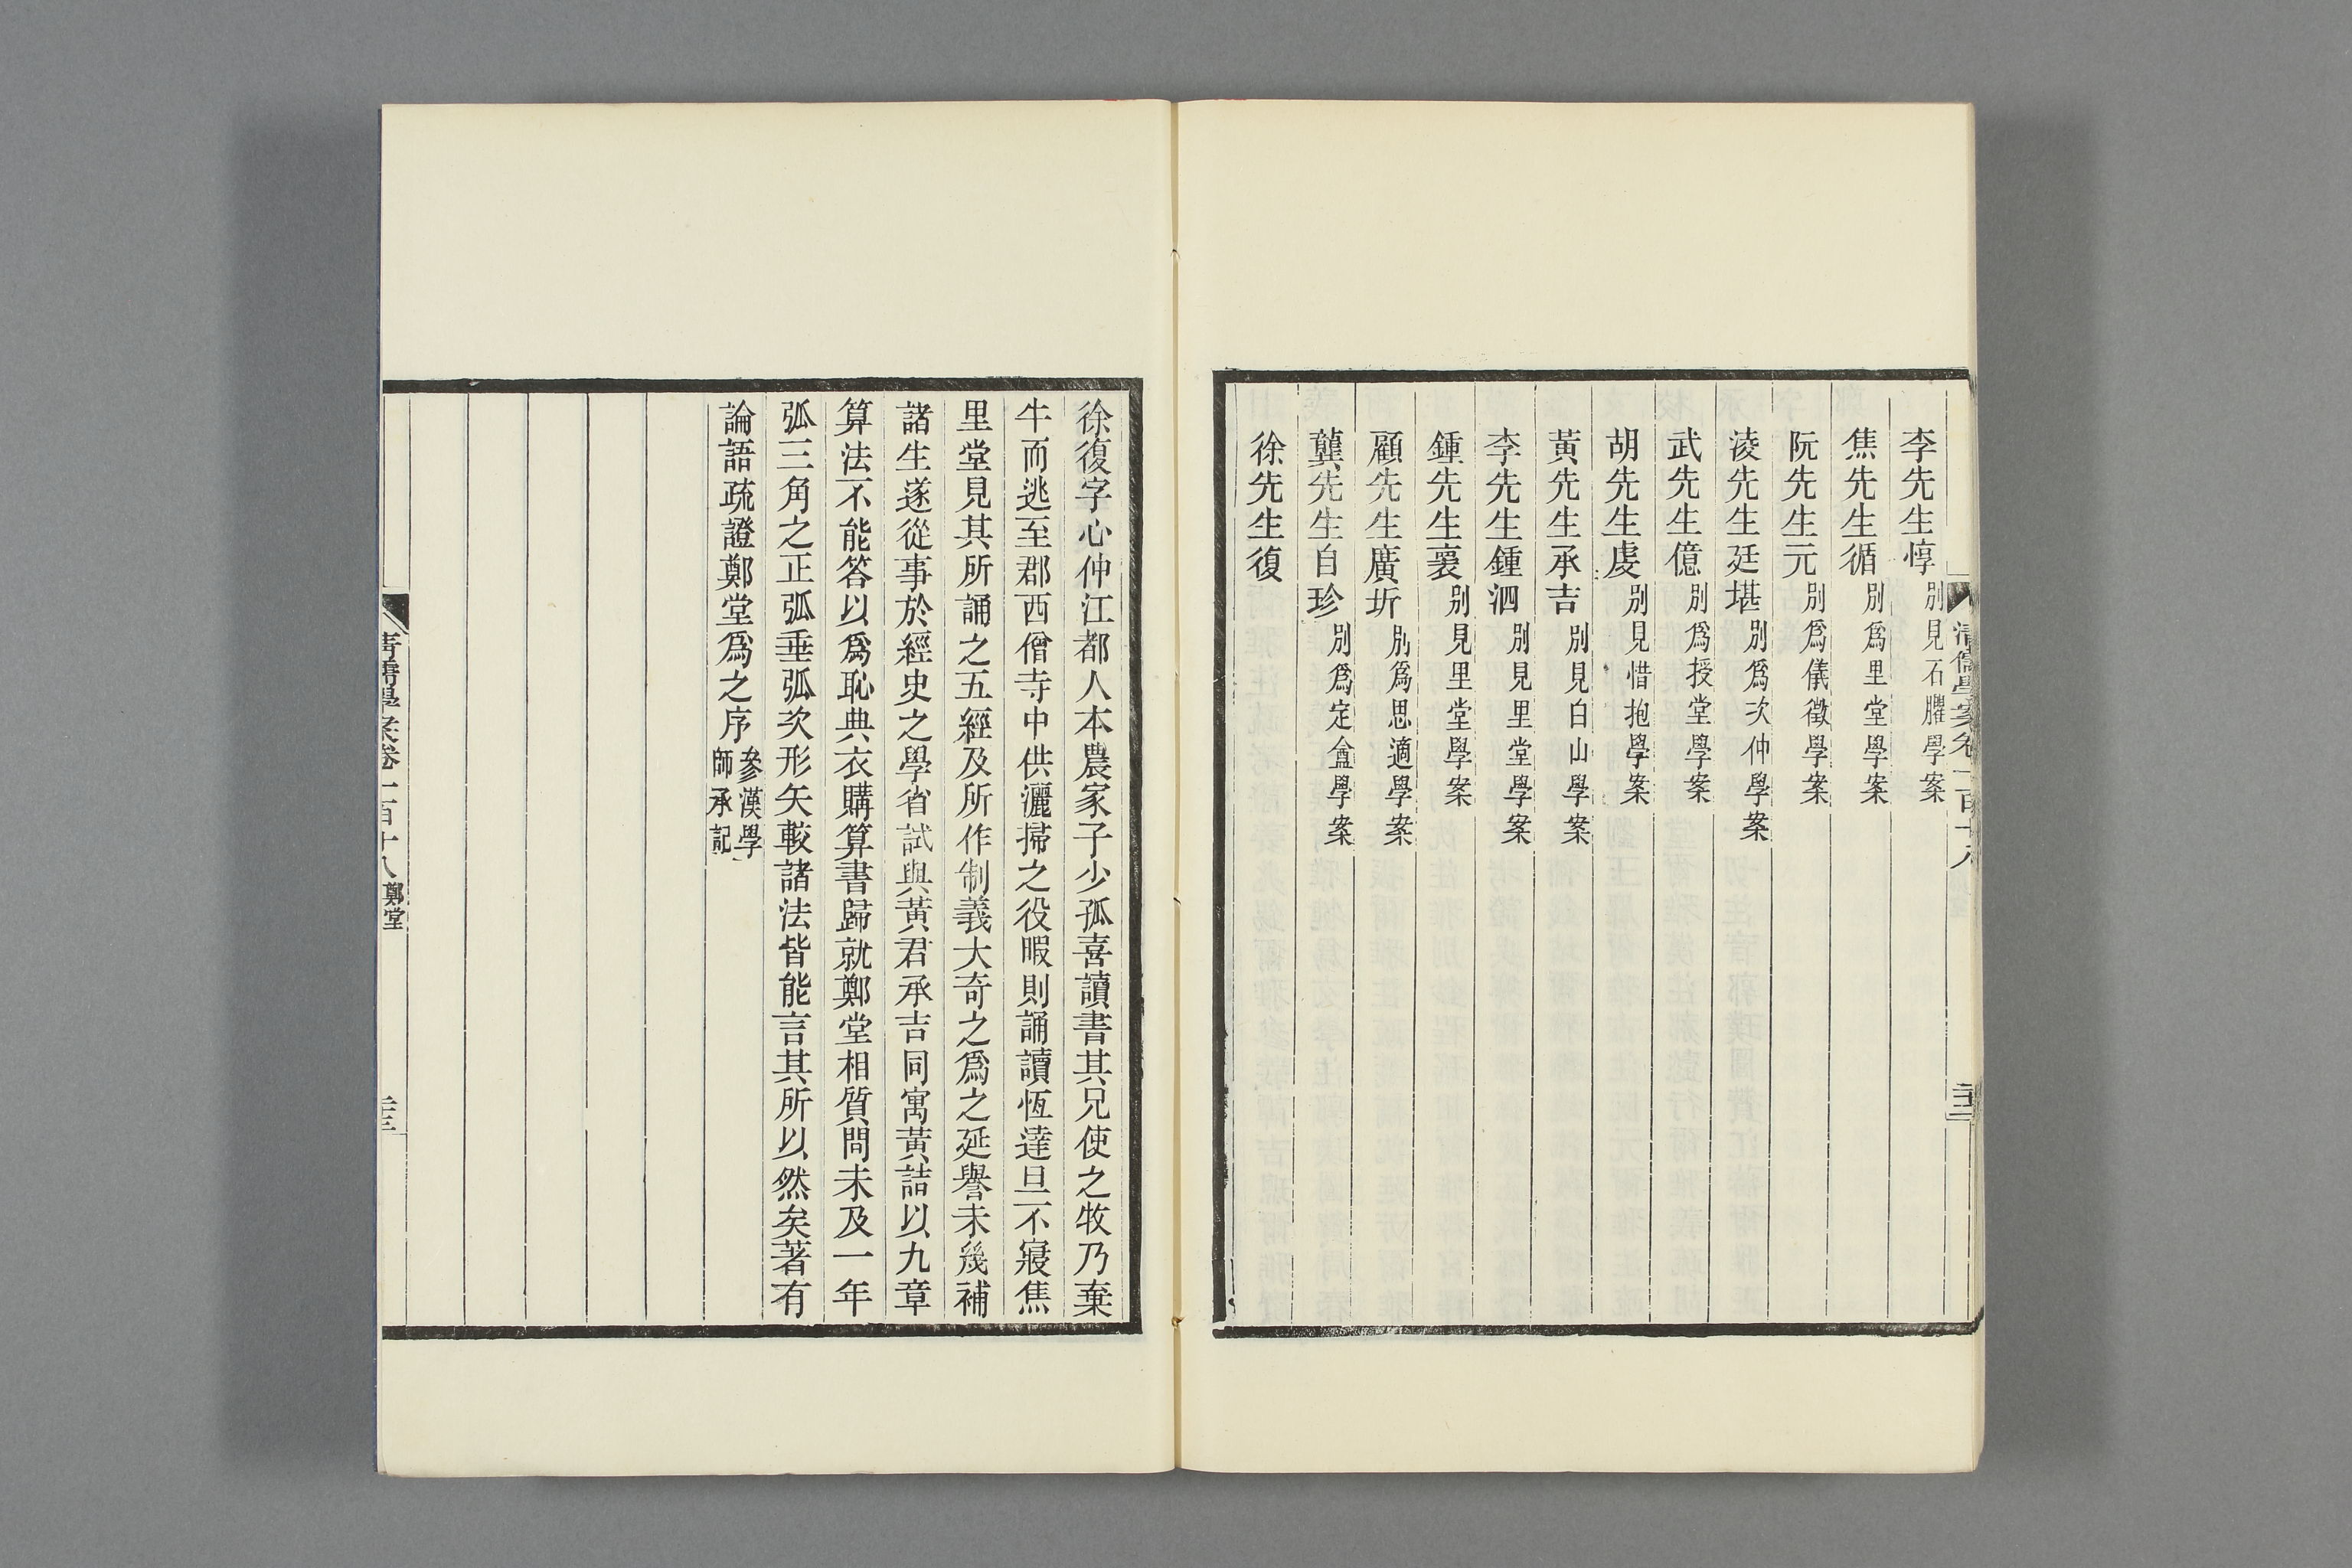 李先生惇別見石臞學案
焦先生循別爲里堂學案
阮先生元別爲儀徵學案
淩先生廷堪別爲次仲學案
武先生億別爲授堂學案
胡先生虔別見惜抱學案
黃先生承吉別見白山學案
李先生鍾泗別見里堂學案
鍾先生褱別見里堂學案
顧先生廣圻別爲思適學案
龔先生自珍別爲定盦學案
徐先生復
徐復字心仲江都人本農家子少孤喜讀書其兄使之牧乃棄
牛而逃至郡西僧寺中供灑掃之役暇則誦讀恆達旦不寢焦
里堂見其所誦之五經及所作制義大奇之爲之延譽未幾補
諸生遂從事於經史之學省試與黃君承吉同寓黃詰以九章
算法不能答以爲恥典衣購算書歸就鄭堂相質問未及一年
弧三角之正弧垂弧次形矢較諸法皆能言其所以然矣著有
論語疏證鄭堂爲之序參漢學師承記
清儒學案卷一百十八 鄭堂